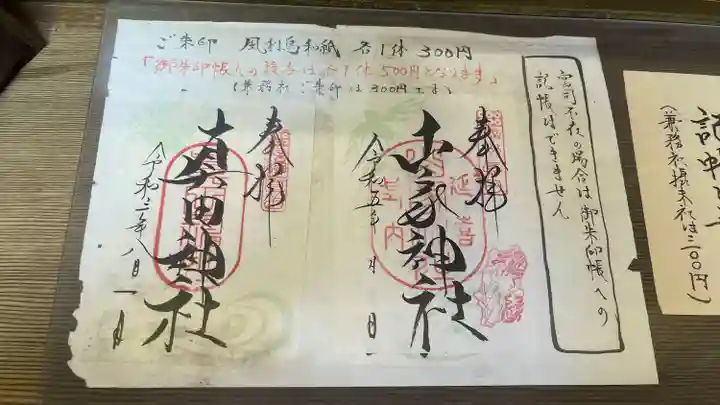 ご朱印 風和紙 各1体 300円
「御朱印帳への揮毫は各1体500円となります」
(兼務社ご朱印は300円です)
宮司不在の場合は御朱印帳への
記帳はできません
奉拝
山家神社
令和五年 月 日
延喜
式内
奉拝
真田神社
令和二年八月一日
(兼務社様末社は三〇〇円)